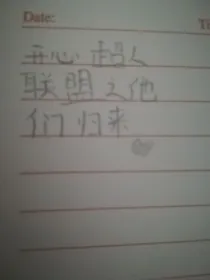 Date:
开心超人
联盟之他
们归来